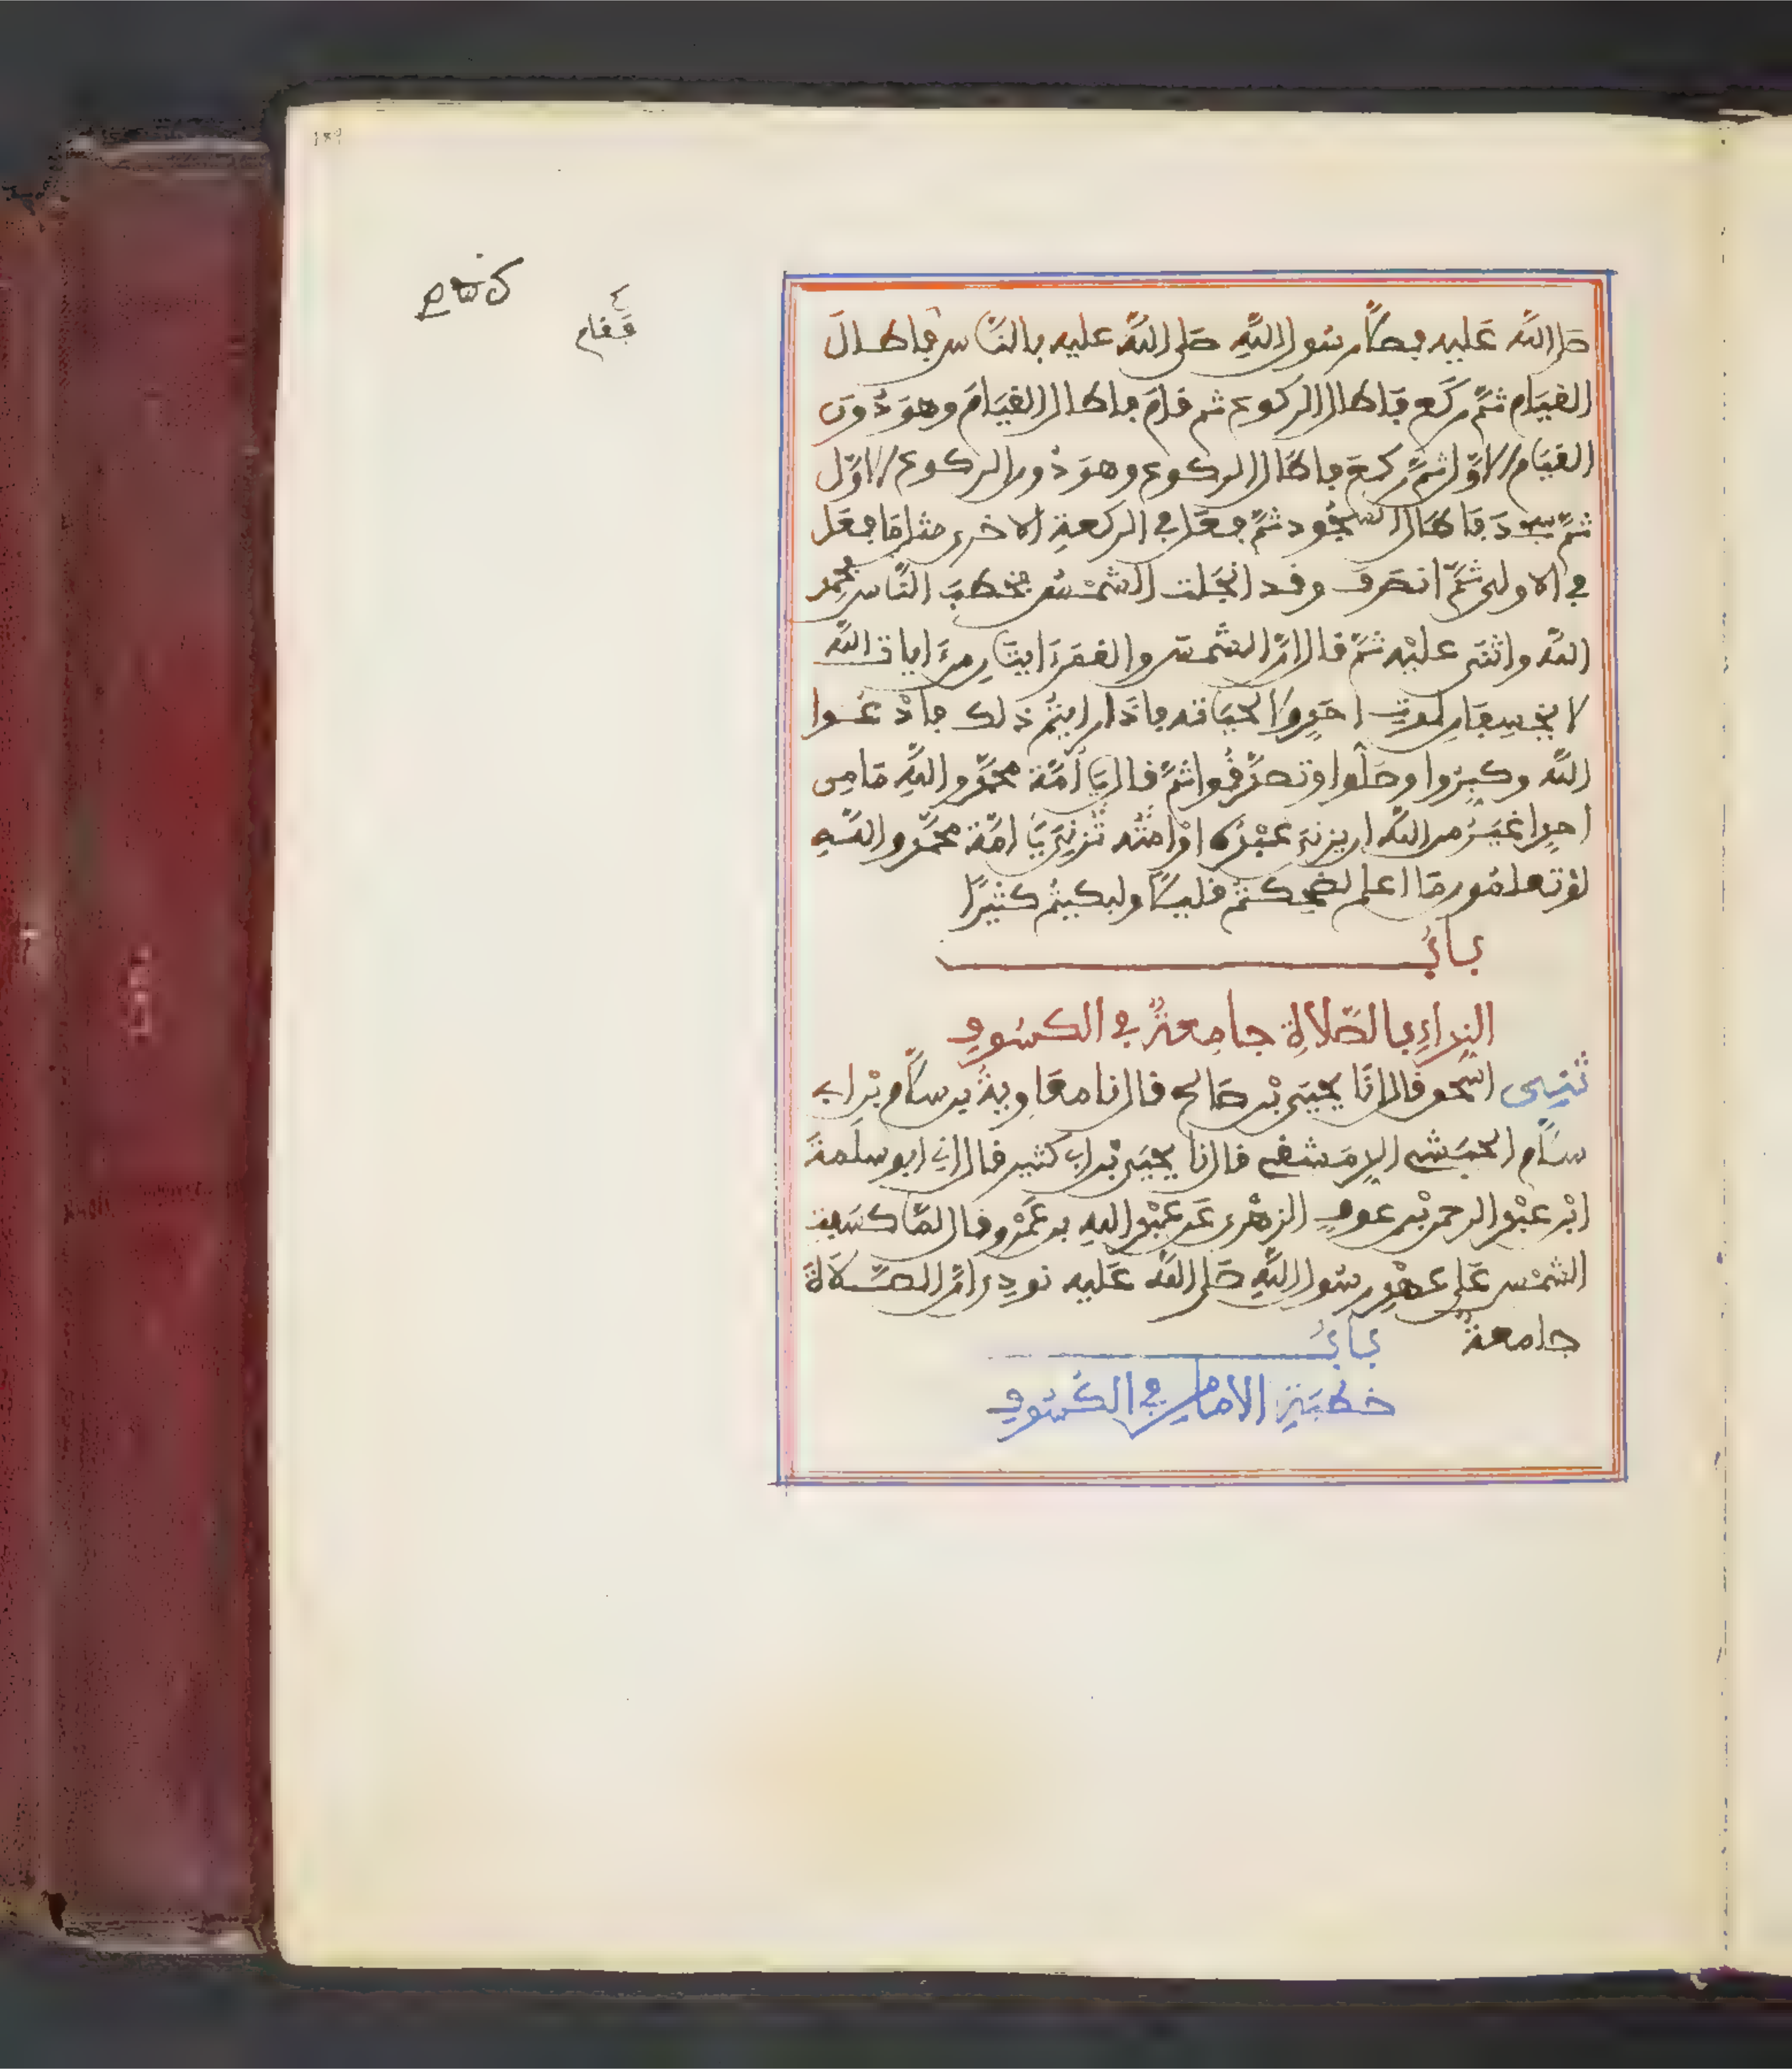 صلى الله عليه فصلى رسول الله صلى الله عليه بالناس فاطال
القيام ثم ركع فاطال الركوع ثم قام فاطال القيام وهو دون
القيام الاول ثم ركع فاطال الركوع وهو دون الركوع الاول
ثم سجد فاطال السجود ثم فعل في الركعة الاخرى مثل ما فعل
في الاولى ثم انصرف وقد انجلت الشمس فخطب الناس فحمد
الله واثنى عليه ثم قال ان الشمس والقمر ايتان من ايات الله
لا يخسفان لموت احد ولا لحياته فاذا رايتم ذلك فادعوا
الله وكبروا وصلوا وتصدقوا ثم قال يا امة محمد والله ما من
احد اغير من الله ان يزني عبده او امته تزني يا امة محمد والله
لو تعلمون ما اعلم لضحكتم قليلا ولبكيتم كثيرا
باب
النداء بالصلاة جامعة في الكسوف
ثني اسحق قال انا يحيى بن صالح قال نا معاوية بن سلام بن ابي
سلام الحبشي الدمشقي قال نا يحيى بن ابي كثير قال اني ابو سلمة
ابن عبد الرحمن بن عوف الزهري عن عبد الله بن عمرو قال لما كسفت
الشمس على عهد رسول الله صلى الله عليه نودي ان الصلاة
جامعة
باب
خطبة الامام في الكسوف
فقام